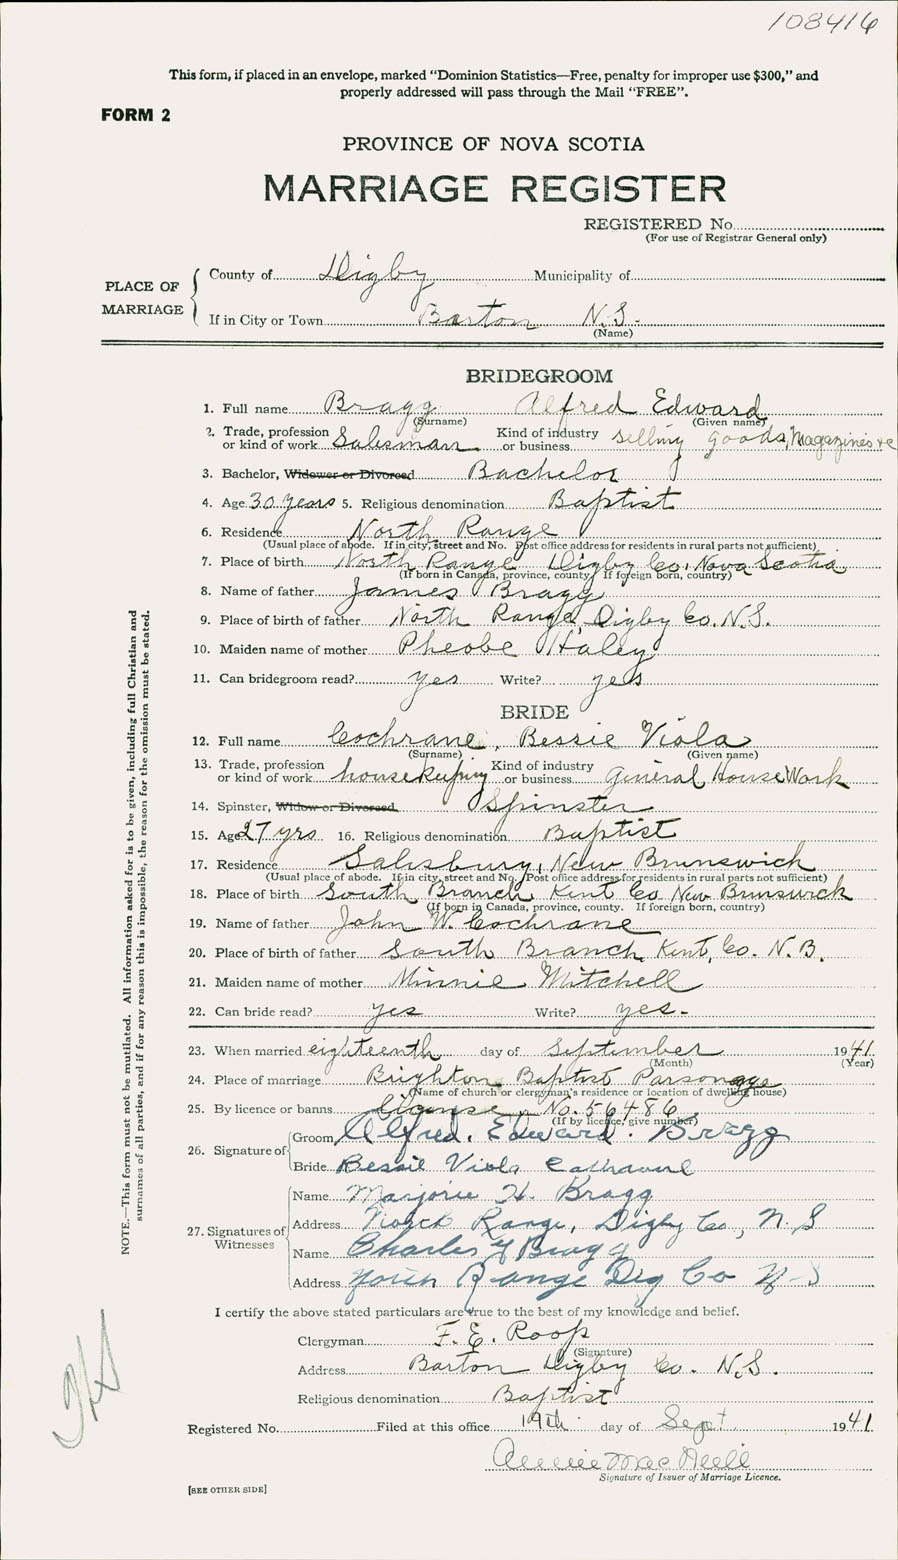 108416
This form, if placed in an envelope, marked “Dominion Statistics—Free, penalty for improper use $300,” and
properly addressed will pass through the Mail “FREE”.
FORM 2
PROVINCE OF NOVA SCOTIA
MARRIAGE REGISTER
REGISTERED No.
(For use of Registrar General only)
PLACE OF MARRIAGE
County of Digby Municipality of
If in City or Town Barton N.S.
(Name)
BRIDEGROOM
1. Full name Bragg Alfred Edward
(Surname) (Given name)
2. Trade, profession or kind of work Salesman Kind of industry or business selling goods, Magazines &c
3. Bachelor, Widower or Divorced Bachelor
4. Age 30 years 5. Religious denomination Baptist
6. Residence North Range
(Usual place of abode. If in city, street and No. Post office address for residents in rural parts not sufficient)
7. Place of birth North Range Digby Co. Nova Scotia
(If born in Canada, province, county. If foreign born, country)
8. Name of father James Bragg
9. Place of birth of father North Range, Digby Co. N.S.
10. Maiden name of mother Pheobe Haley
11. Can bridegroom read? yes Write? yes
BRIDE
12. Full name Cochrane, Bessie Viola
(Surname) (Given name)
13. Trade, profession or kind of work housekeeping Kind of industry or business General House Work
14. Spinster, Widow or Divorced Spinster
15. Age 27 yrs 16. Religious denomination Baptist
17. Residence Salisbury, New Brunswick
(Usual place of abode. If in city, street and No. Post office address for residents in rural parts not sufficient)
18. Place of birth South Branch Kent Co New Brunswick
(If born in Canada, province, county. If foreign born, country)
19. Name of father John W. Cochrane
20. Place of birth of father South Branch Kent, Co. N.B.
21. Maiden name of mother Minnie Mitchell
22. Can bride read? yes Write? yes.
23. When married eighteenth day of September 1941.
(Month) (Year)
24. Place of marriage Brighton Baptist Parsonage
(Name of church or clergyman's residence or location of dwelling house)
25. By licence or banns License No. 56486
(If by licence, give number)
26. Signature of
Groom Alfred. Edward. Bragg
Bride Bessie Viola Cochrane
27. Signatures of Witnesses
Name Marjorie H. Bragg
Address North Range, Digby Co, N.S
Name Charles Y Bragg
Address North Range Dig Co N-S
I certify the above stated particulars are true to the best of my knowledge and belief.
Clergyman F. E. Roop
(Signature)
Address Barton Digby Co. N.S.
Religious denomination Baptist
Registered No. Filed at this office 19th day of Sept 1941
Annie MacNeill
Signature of Issuer of Marriage Licence.
[SEE OTHER SIDE]
NOTE.—This form must not be mutilated. All information asked for is to be given, including full Christian and
surnames of all parties, and if for any reason this is impossible, the reason for the omission must be stated.